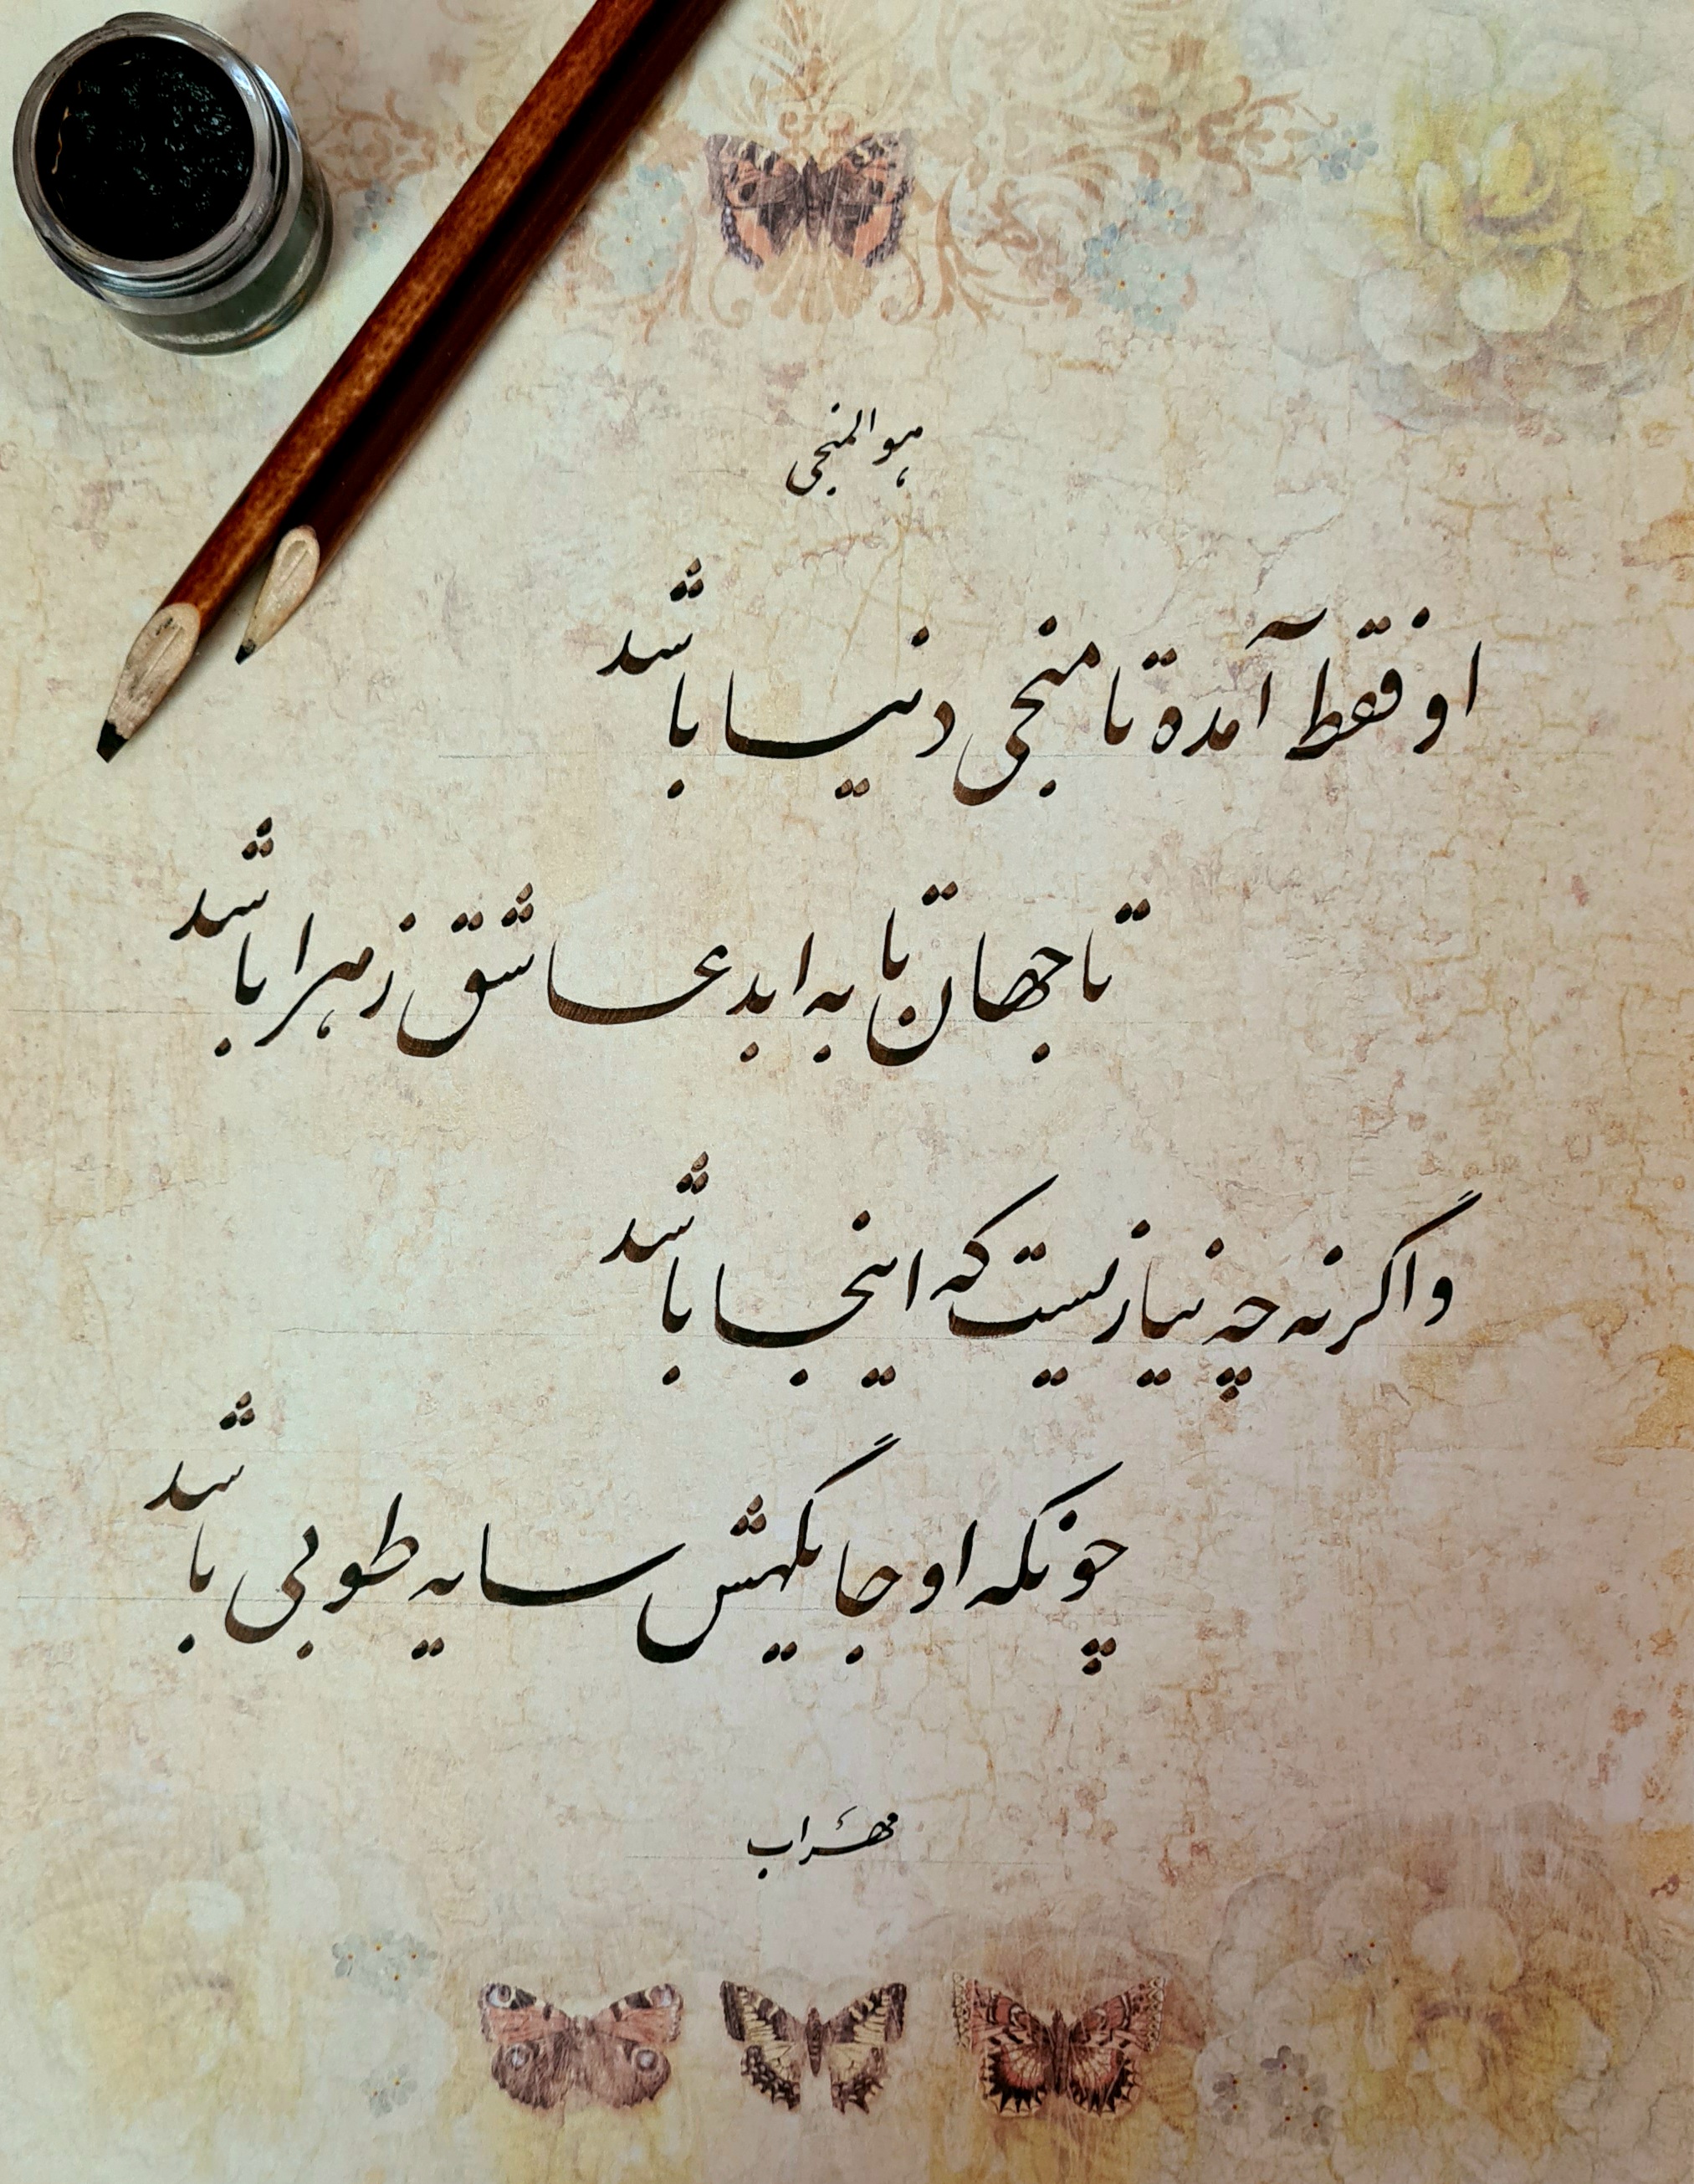 هو المنجی
او فقط آمده تا منجی دنیا باشد
تا جهان تا به ابد عاشق زهرا باشد
واگرنه چه نیازیست که اینجا باشد
چونکه او جایگهش سایه طوبی باشد
مهراب